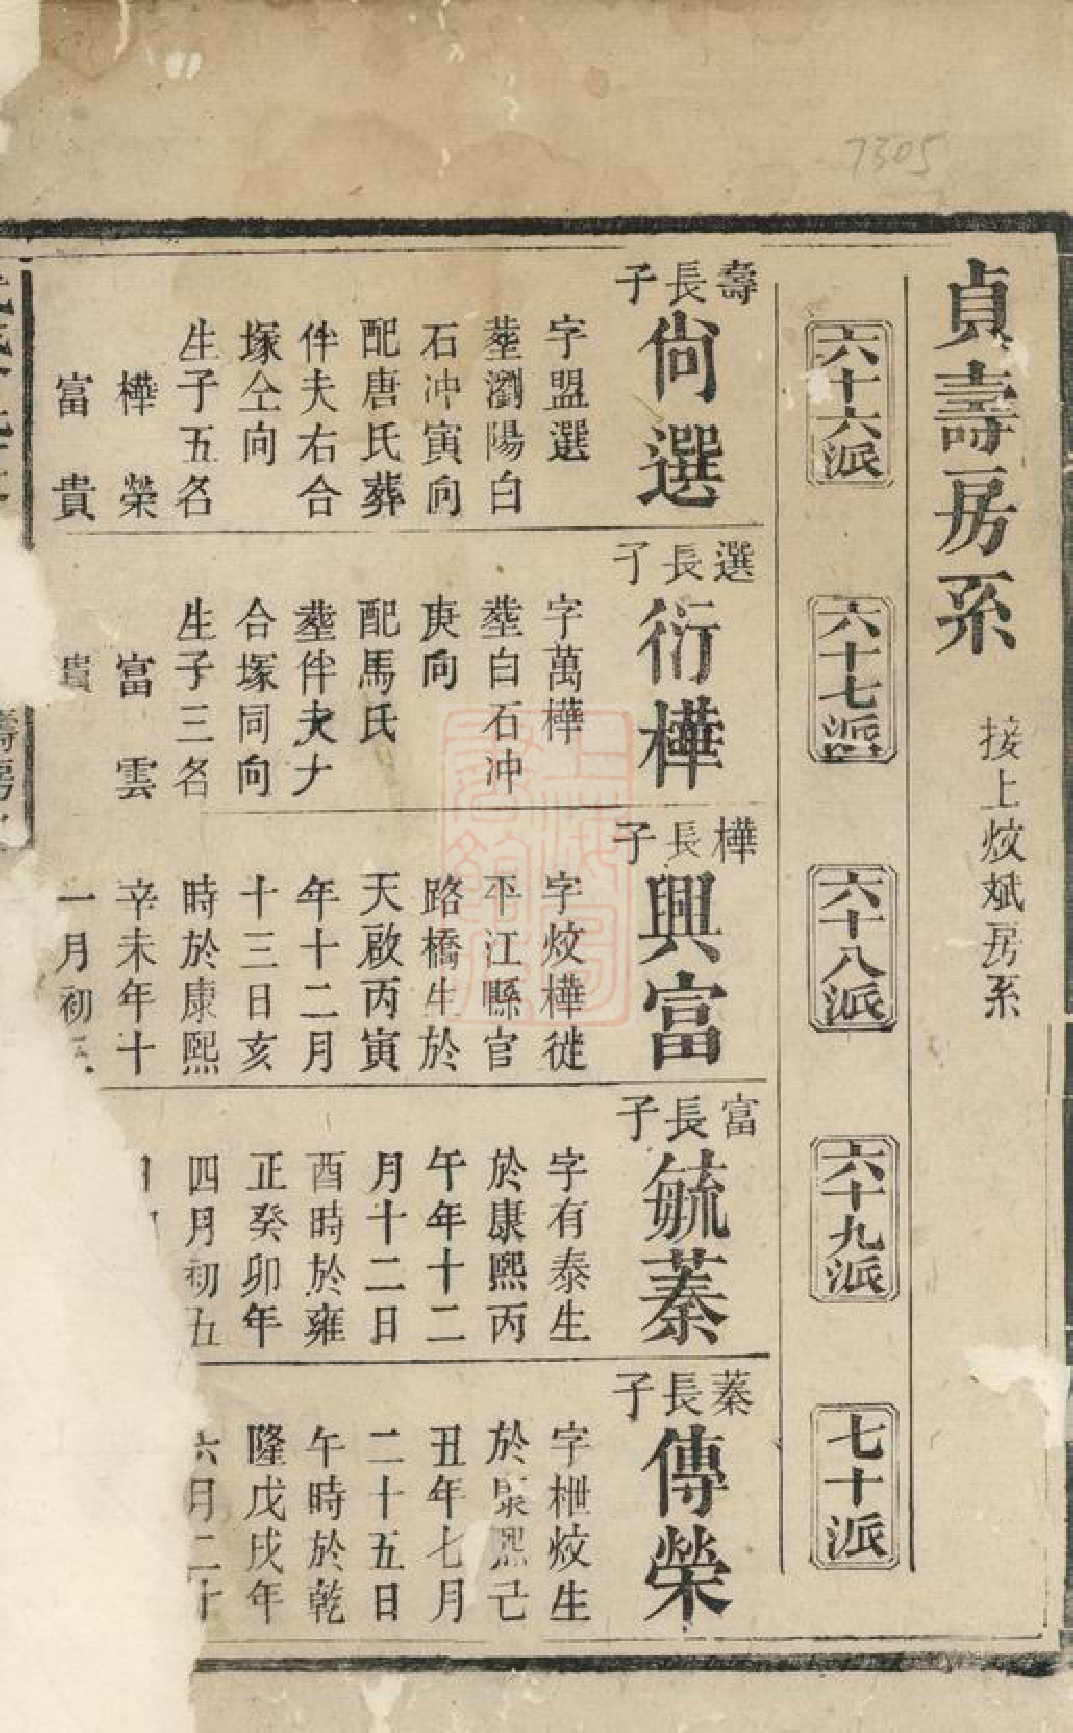 7305
貞壽房系 接上炆斌房系
六十六派
六十七派
六十八派
六十九派
七十派
壽長子
尙選
字盟選
塟瀏陽白
石冲寅向
配唐氏葬
伴夫右合
塚仝向
生子五名
樺 榮
富 貴
選長子
衍樺
字萬樺
塟白石冲
庚向
配馬氏
塟伴夫𠂇
合塚同向
生子三名
富 雲
貴
樺長子
興富
字炆樺徙
平江縣官
路橋生於
天啟丙寅
年十二月
十三日亥
時於康熙
辛未年十
一月初
富長子
毓蓁
字有泰生
於康熙丙
午年十二
月十二日
酉時於雍
正癸卯年
四月初五
蓁長子
傳榮
字枻炆生
於康熙己
丑年七月
二十五日
午時於乾
隆戊戌年
六月二十